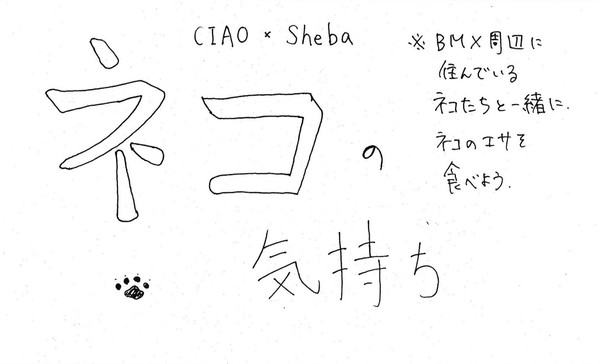 CIAO × Sheba
ネコの
気持ち
※ BMX周辺に
住んでいる
ネコたちと一緒に.
ネコのエサを
食べよう.